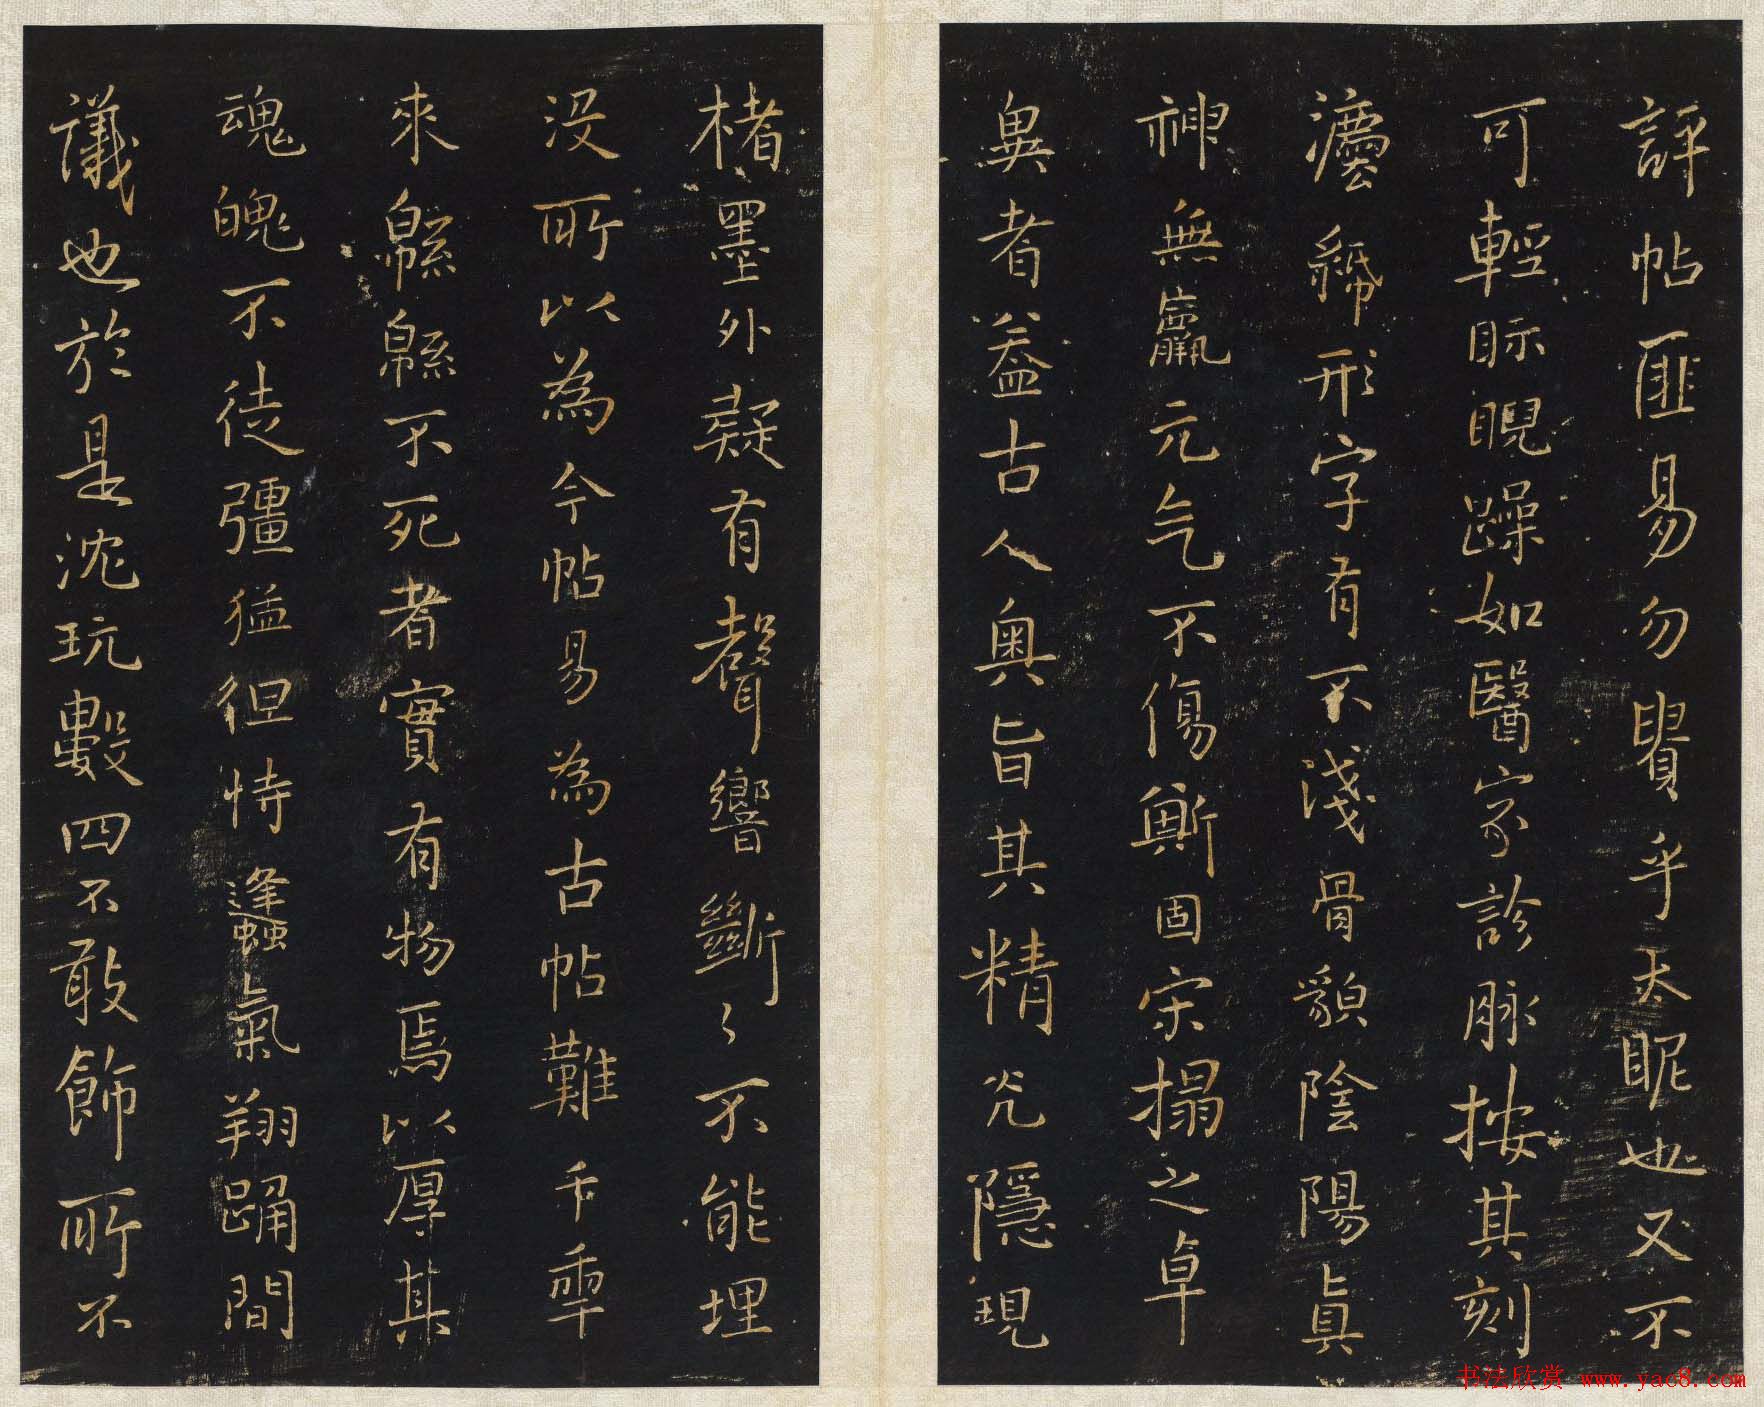 評帖匪易勿贵乎天眤也又不
可輕眎睨躁如醫家診脉按其刻
灋肄形字有不淺骨貌陰陽眞
神無羸元气不傷斯固宋搨之卓
異者葢古人奧旨其精光隱現
楮墨外疑有聲響斷〻不能埋
没所以為今帖易為古帖難千秊
來緜緜不死者實有物焉以厚其
魂魄不徒彊猛但恃蠭氣翔踊間
議也於是沈玩數四不敢飾所不
书法欣赏 www.yac8.com